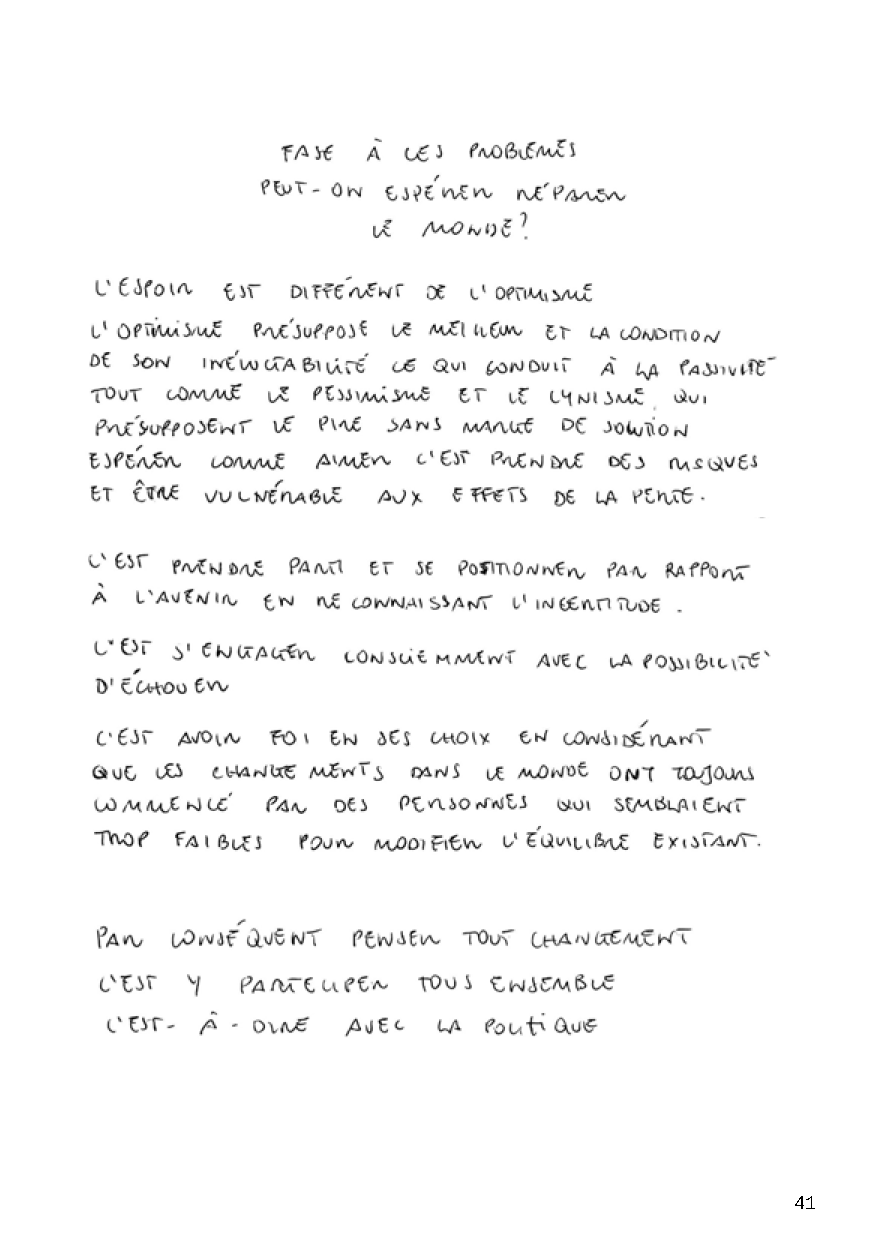 FASE À CES PROBLÈMES
PEUT-ON ESPÉRER RÉPARER
LE MONDE?
L'ESPOIR EST DIFFÉRENT DE L'OPTIMISME
L'OPTIMISME PRÉSUPPOSE LE MEILLEUR ET LA CONDITION
DE SON INÉLUCTABILITÉ CE QUI CONDUIT À LA PASSIVITÉ
TOUT COMME LE PESSIMISME ET LE CYNISME QUI
PRÉSUPPOSENT LE PIRE SANS MARGE DE SOLUTION
ESPÉRER COMME AIMER C'EST PRENDRE DES RISQUES
ET ÊTRE VULNÉRABLE AUX EFFETS DE LA PERTE.
C'EST PRENDRE PARTI ET SE POSITIONNER PAR RAPPORT
À L'AVENIR EN RECONNAISSANT L'INCERTITUDE.
C'EST S'ENGAGER CONSCIEMMENT AVEC LA POSSIBILITÉ
D'ÉCHOUER
C'EST AVOIR FOI EN SES CHOIX EN CONSIDÉRANT
QUE LES CHANGEMENTS DANS LE MONDE ONT TOUJOURS
COMMENCÉ PAR DES PERSONNES QUI SEMBLAIENT
TROP FAIBLES POUR MODIFIER L'ÉQUILIBRE EXISTANT.
PAR CONSÉQUENT PENSER TOUT CHANGEMENT
C'EST Y PARTICIPER TOUS ENSEMBLE
C'EST-À-DIRE AVEC LA POLITIQUE
41